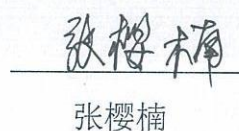 张樱楠
张樱楠